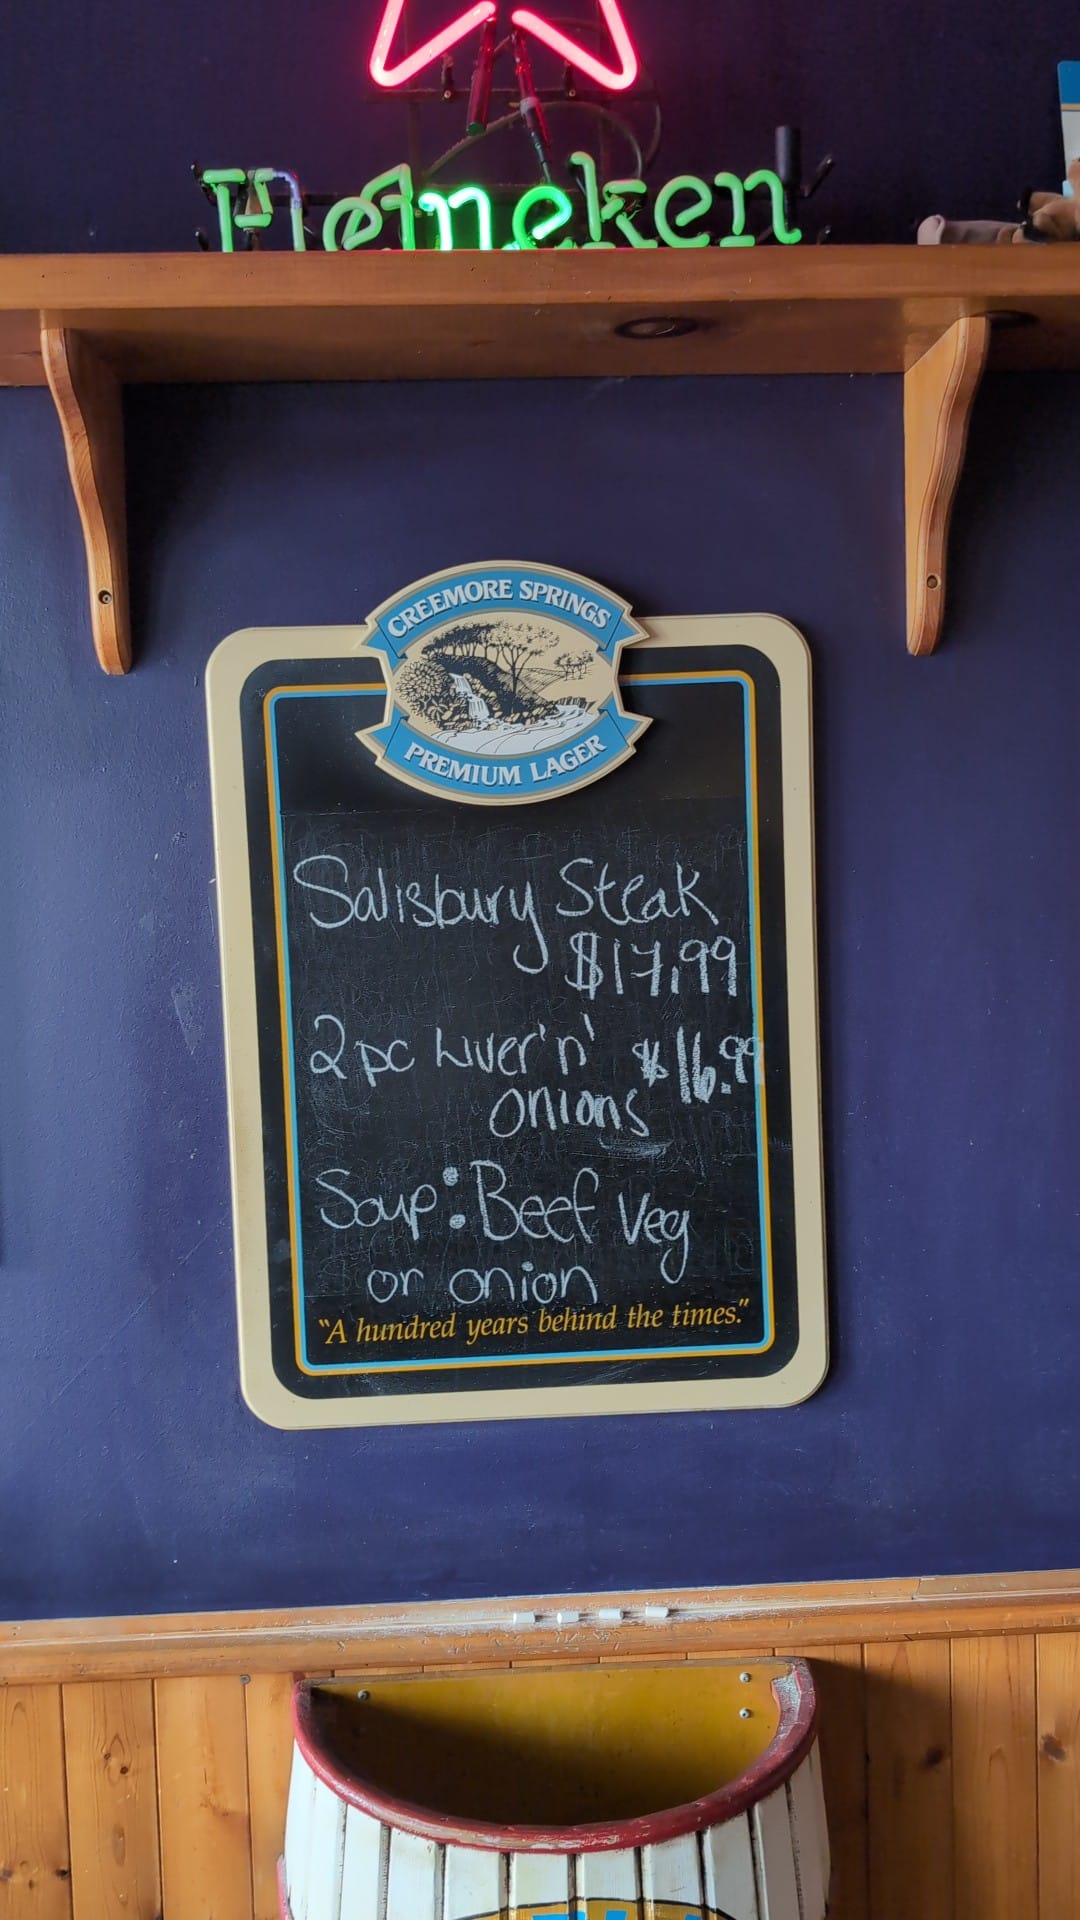 Heineken
CREEMORE SPRINGS
PREMIUM LAGER
Salisbury Steak
$17.99
2 pc Liver 'n' $16.99
onions
Soup: Beef Veg
or onion
"A hundred years behind the times."